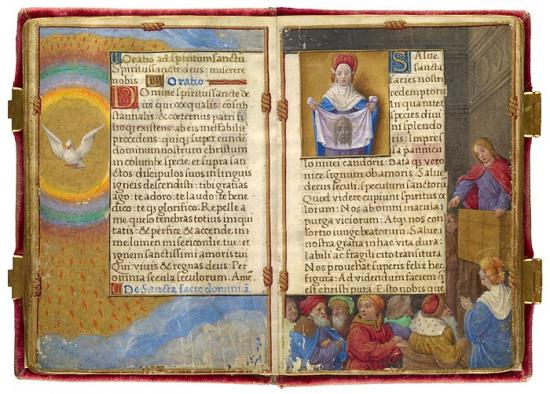 Oratio ad spiritum sanctu
Spiritus sancte deus: miserere
nobis. Oratio
Domine spiritus sancte de
us qui coequalis: consub
stantialis: & coeternus patri fi
lioq existens: ab eis inestabilit
precedens: quiq super eundem
dominum nostrum christum
in columbe specie. et supra sanc
tos discipulos suos in linguis
igneis descendisti: tibi gratias
ago: te adoro: te laudo: te bene
dico: te qz glorifico. Repelle a
me queso tenebras totius iniqui
tatis & perfidie & accende in
me lumen misericordie tue: et i
gnem sanctissimi amoris tui
Qui vivis & regnas deus: Per
omnia secula seculorum. Ame
De Sancta facie domini
Salue
sancta
facies nostri
redemptoris
in qua nitet
species divi
ni splendo
ris: Impres
sa pannicu
lo nivei candoris: Data qz vero
nice signum ob amoris. Salue
decus seculi, speculum sanctoru
Quod videre cupiunt spiritus ce
lorum: Nos ab omni macula
purga viciorum: Atqz nos con
sortio iunge beatorum. Salue
nostra gloria in hac vita dura:
labili ac fragili cito transitura
Nos produc ad superos felix hec
figura: Ad videndum faciem q
est christi pura: Esto nobis que